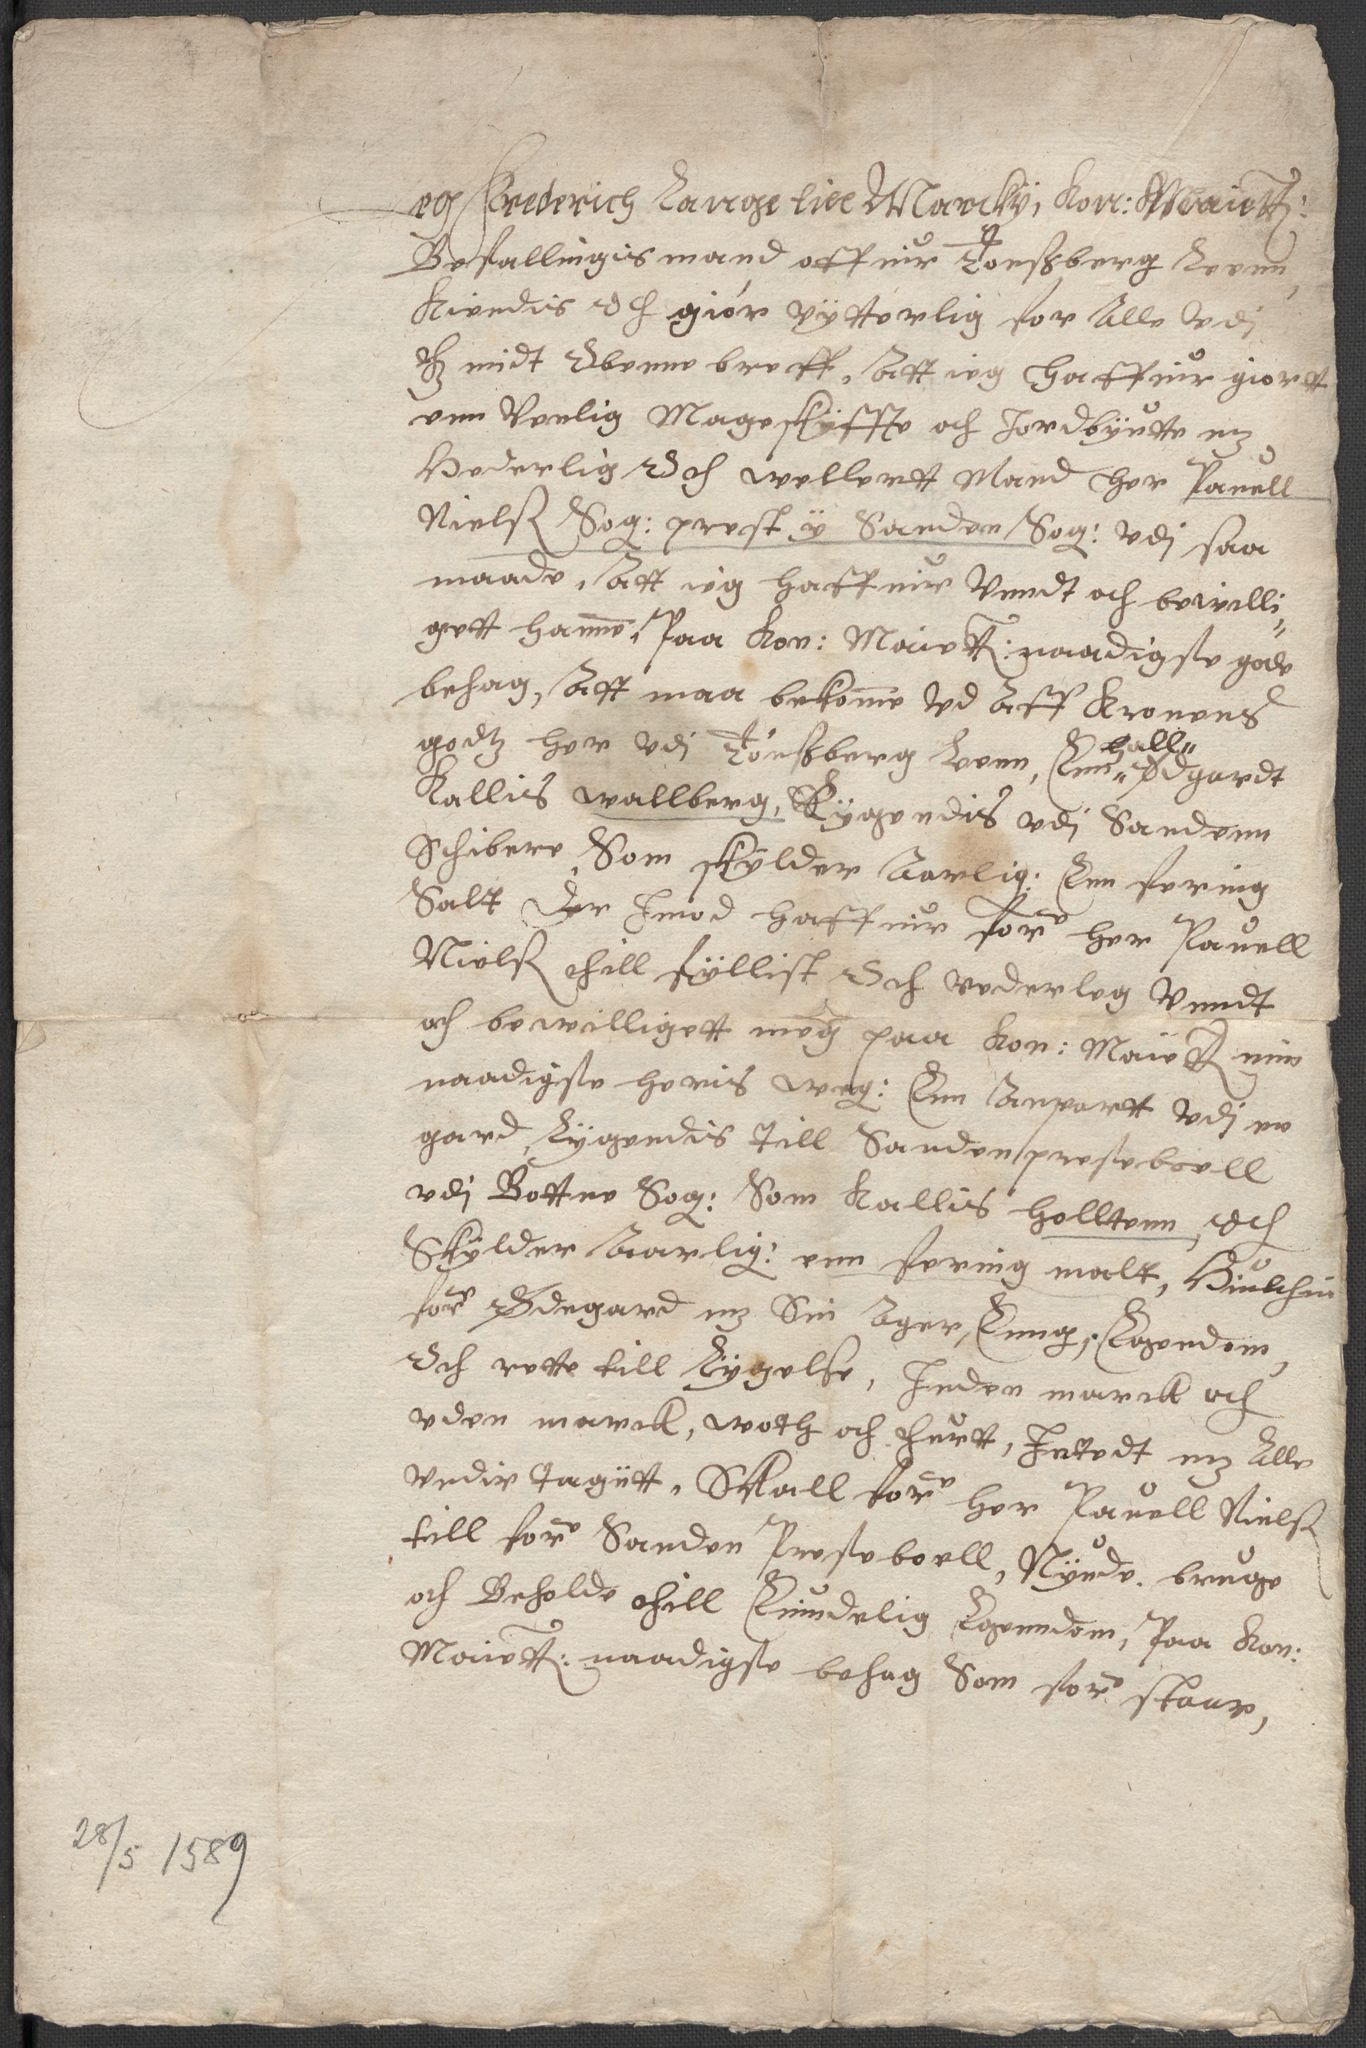 eg Frederich Lange till Marcky, Kon: Maietz:
Befallingis mand offuir Tonsberg Leenn,
Kiendis Och giör vÿtterlig for Alle vdj
tz midt Obenne breff, Att ieg haffuir giortt
enn Venlig Mageskÿffte och Jordbÿutte mz
Hederlig Och wellertt Mand her Pauell
Nielß Sog: prest ÿ Sanden Sog: vdj saa
maade, Att ieg haffuir Vendt och bewilli„
gett hannē, Paa Kon: Maietz: naadigste gode
behag, Att maa bekomē vd Aff Kronens
godtz her vdj Tönsberg Leenn, Enn
hall„
„ Ødgardt
Kallis wallberg, Lÿgendis vdj Sandenn
Schibere, Som skÿlder Aarlig: Enn fering
Salt Der Imod haffuir forē her Pauell
Nielß thill fÿllist Och vederleg Vendt
och bewilligett meg paa Kon: Maietz min
naadigste heris weg: Enn Anpartt vdj en
gard, Lÿgendis till Sanden presteboell
vdj Bottne Sog: Som Kallis holltenn, och
Skÿlder Aarlig: enn fering malt, Huilchin
forē Ødegard mz Sin Ager, Eeng, Egendom,
Och rette till Lÿgelse, Inden marck och
vden marck, woth och thurt, Intedt mz Alle
vndir tagitt, Skall forē her Pauell Nielß
till forē Sanden Presteboell, Nÿude, bruge
och Beholde thill Euindelig Egenndom, Paa Kon:
Maietz: naadigste behag Som forē staar,
28/5 1589